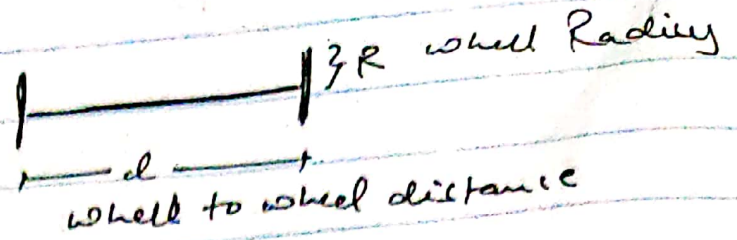 }R whell Radius
d
whell to wheel distance